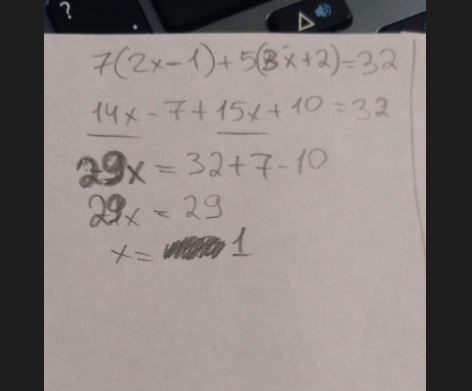 ?
7(2x-1)+5(3x+2)=32
14x-7+15x+10=32
29x=32+7-10
29x=29
x=1